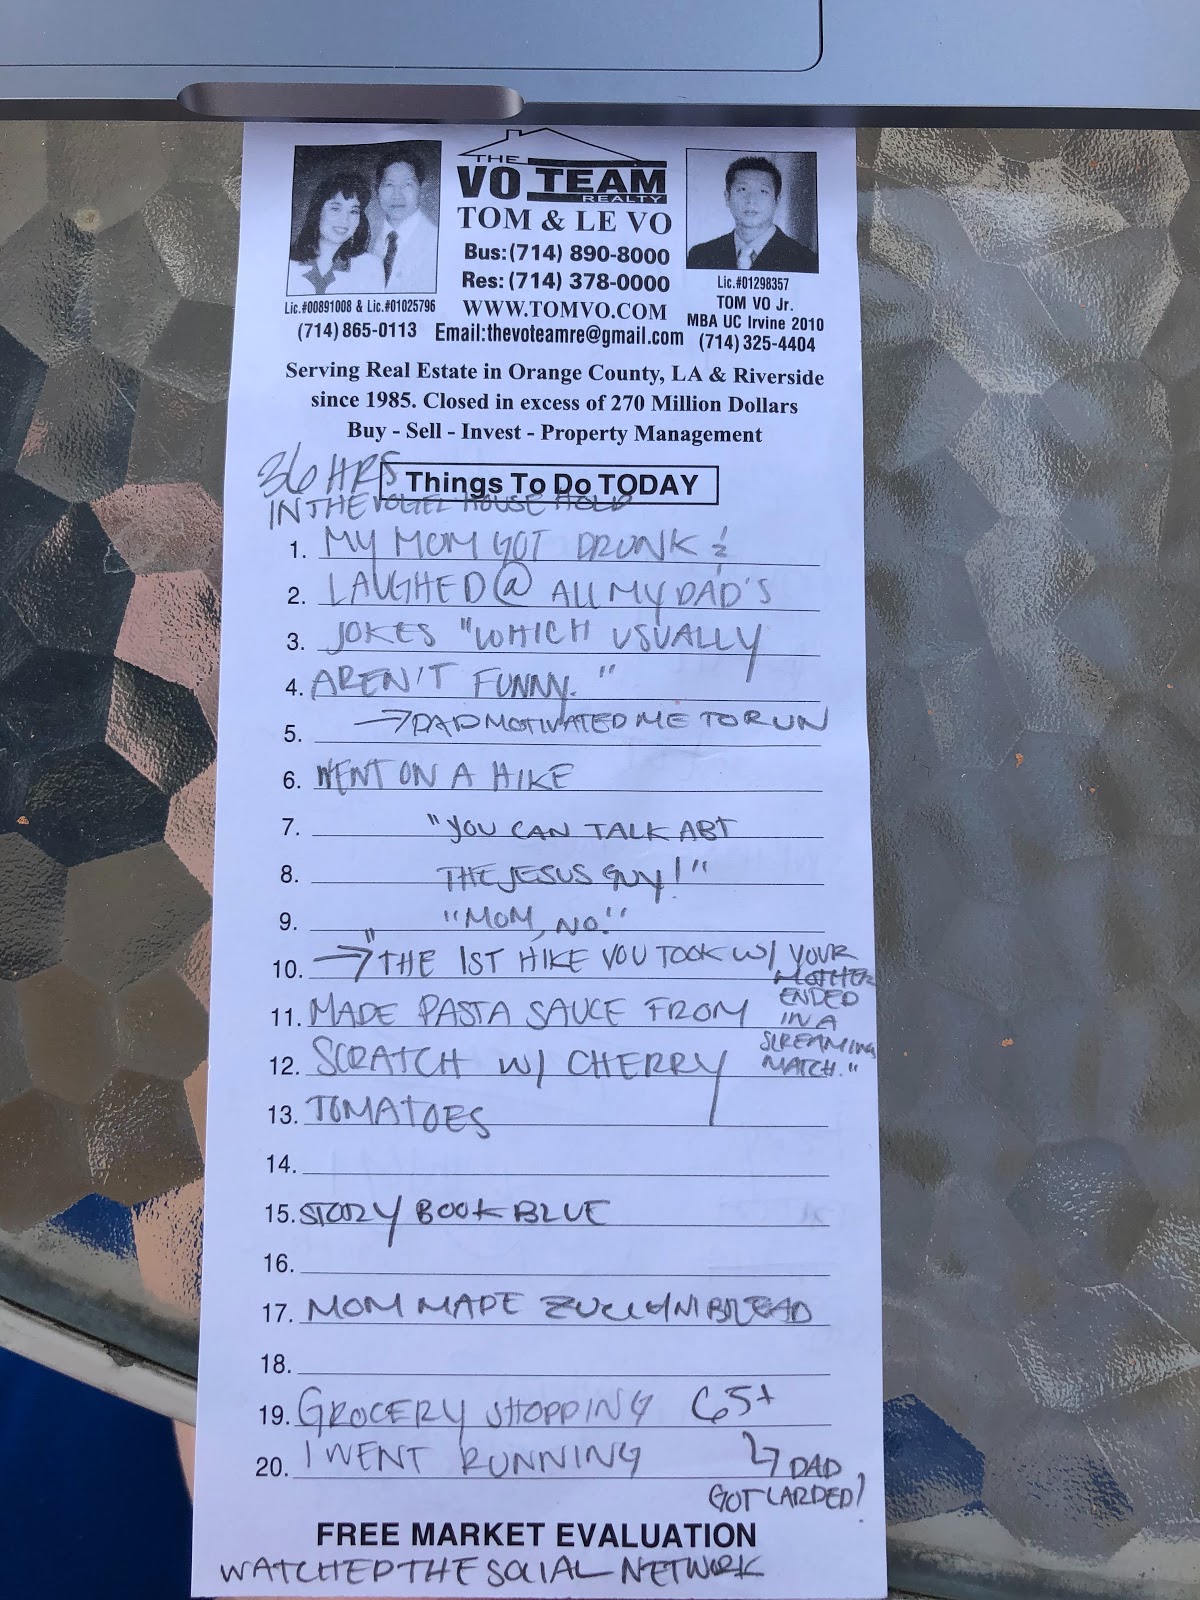 THE
VO TEAM
REALTY
TOM & LE VO
Bus:(714) 890-8000
Res:(714) 378-0000
WWW.TOMVO.COM
Email:thevoteamre@gmail.com
Lic.#00891008 & Lic.#01025796
(714) 865-0113
Lic.#01298357
TOM VO Jr.
MBA UC Irvine 2010
(714) 325-4404
Serving Real Estate in Orange County, LA & Riverside
since 1985. Closed in excess of 270 Million Dollars
Buy - Sell - Invest - Property Management
36 HRS
Things To Do TODAY
IN THE VOGEL HOUSE HOLD
1. MY MOM GOT DRUNK &
2. LAUGHED @ ALL MY DAD'S
3. JOKES "WHICH USUALLY
4. AREN'T FUNNY."
5. → DAD MOTIVATED ME TO RUN
6. WENT ON A HIKE
7. "YOU CAN TALK ABT
8. THE JESUS GUY!"
9. "MOM, NO."
10. → "THE 1ST HIKE YOU TOOK W/ YOUR
MOTHER
ENDED
IN A
SCREAMING
MATCH."
11. MADE PASTA SAUCE FROM
12. SCRATCH W/ CHERRY
13. TOMATOES
14.
15. STORY BOOK BLUE
16.
17. MOM MADE ZUCCHINI BREAD
18.
19. GROCERY SHOPPING 65+
20. I WENT RUNNING
↳ DAD
GOT CARDED!
FREE MARKET EVALUATION
WATCHED THE SOCIAL NETWORK